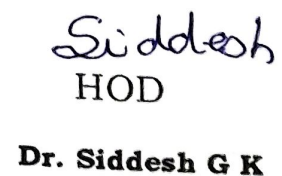 Siddesh
HOD
Dr. Siddesh G K